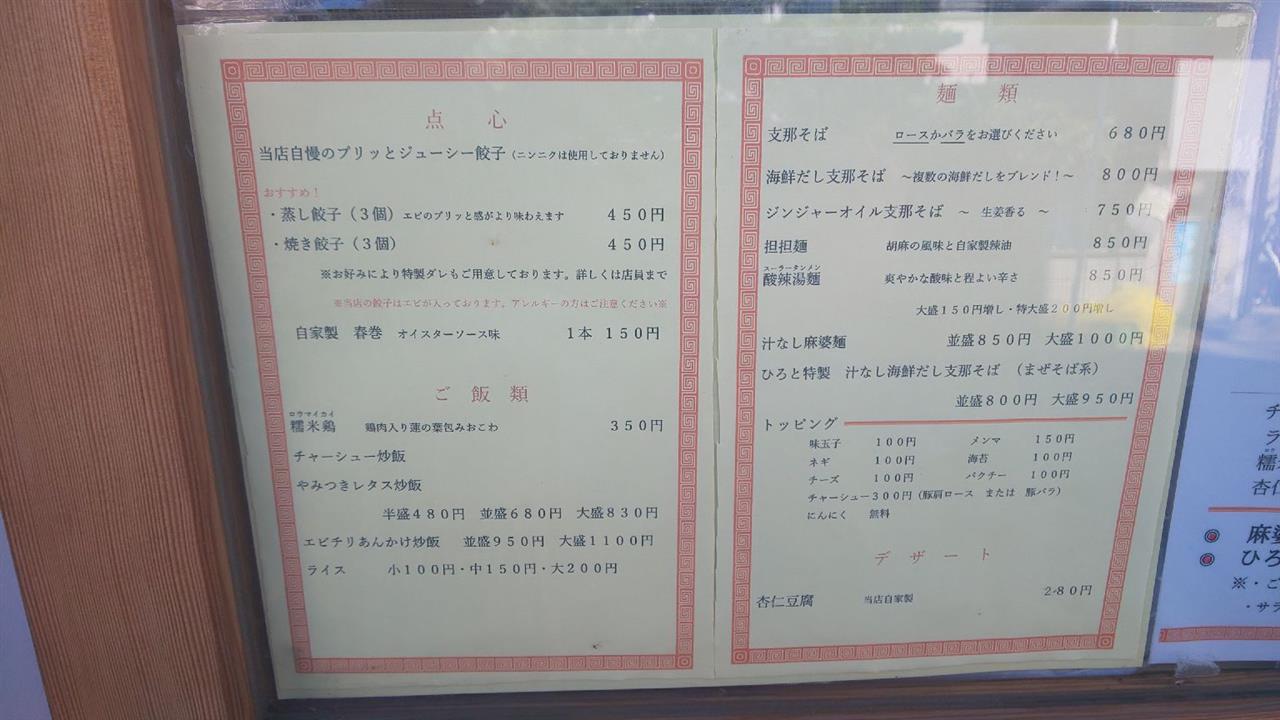 点心
当店自慢のプリッとジューシー餃子（ニンニクは使用しておりません）
おすすめ！
・蒸し餃子（３個）エビのプリッと感がより味わえます ４５０円
・焼き餃子（３個） ４５０円
※お好みにより特製ダレもご用意しております。詳しくは店員まで
※当店の餃子はエビが入っております。アレルギーの方はご注意ください※
自家製 春巻 オイスターソース味 １本 １５０円
ご飯類
ロウマイカイ
糯米鶏 鶏肉入り蓮の葉包みおこわ ３５０円
チャーシュー炒飯
やみつきレタス炒飯
半盛４８０円 並盛６８０円 大盛８３０円
エビチリあんかけ炒飯 並盛９５０円 大盛１１００円
ライス 小１００円・中１５０円・大２００円
麺類
支那そば ロースかバラをお選びください ６８０円
海鮮だし支那そば ～複数の海鮮だしをブレンド！～ ８００円
ジンジャーオイル支那そば ～ 生姜香る ～ ７５０円
担担麺 胡麻の風味と自家製辣油 ８５０円
スーラータンメン
酸辣湯麺 爽やかな酸味と程よい辛さ ８５０円
大盛１５０円増し・特大盛２００円増し
汁なし麻婆麺 並盛８５０円 大盛１０００円
ひろと特製 汁なし海鮮だし支那そば （まぜそば系）
並盛８００円 大盛９５０円
トッピング
味玉子 １００円 メンマ １５０円
ネギ １００円 海苔 １００円
チーズ １００円 パクチー １００円
チャーシュー３００円（豚肩ロース または 豚バラ）
にんにく 無料
デザート
杏仁豆腐 当店自家製 ２８０円
チ
ラ
糯
杏仁
麻婆
ひろ
※・ご
・サラ